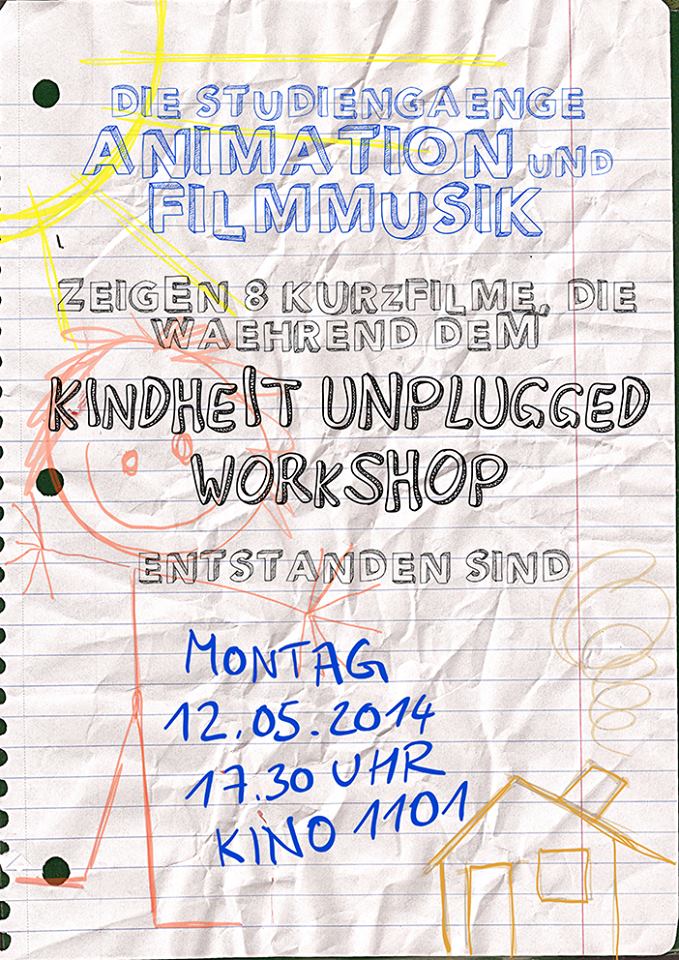 DIE STUDIENGAENGE
ANIMATION UND
FILMMUSIK
ZEIGEN 8 KURZFILME, DIE
WAEHREND DEM
KINDHEIT UNPLUGGED
WORKSHOP
ENTSTANDEN SIND
MONTAG
12.05.2014
17.30 UHR
KINO 1101